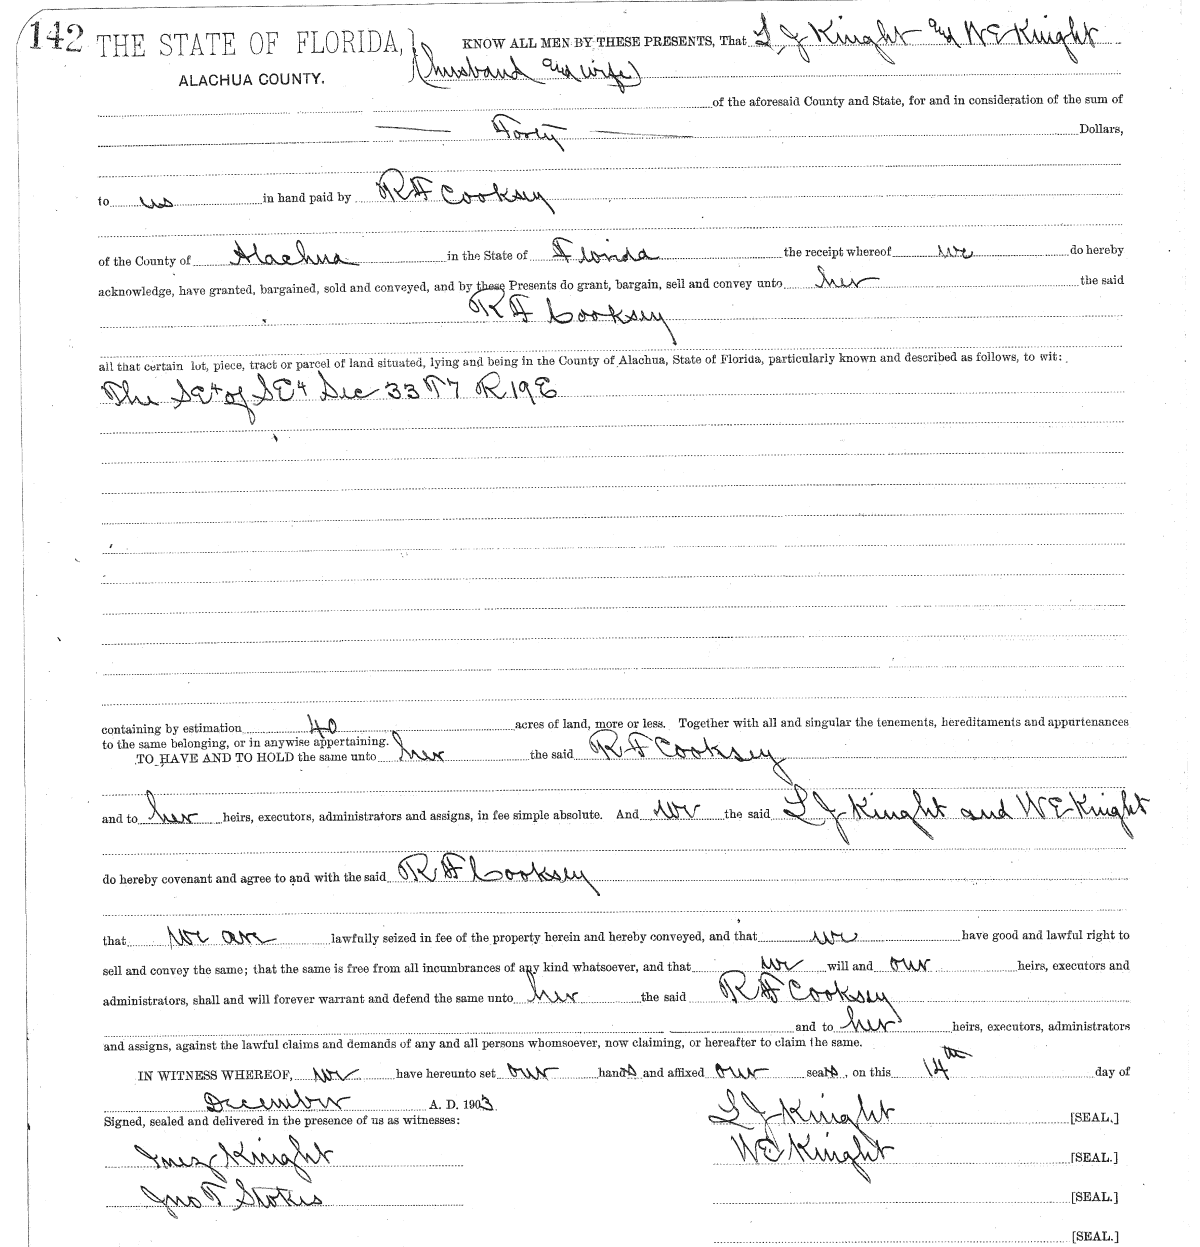 142 THE STATE OF FLORIDA, } KNOW ALL MEN BY THESE PRESENTS, That L J Knight and W E Knight
ALACHUA COUNTY. (husband and wife)
of the aforesaid County and State, for and in consideration of the sum of
Forty Dollars,
to us in hand paid by R F Cooksey
of the County of Alachua in the State of Florida the receipt whereof we do hereby
acknowledge, have granted, bargained, sold and conveyed, and by these Presents do grant, bargain, sell and convey unto her the said
R F Cooksey
all that certain lot, piece, tract or parcel of land situated, lying and being in the County of Alachua, State of Florida, particularly known and described as follows, to wit:
The SE4 of SE4 Sec 33 T7 R 19 E
containing by estimation 40 acres of land, more or less. Together with all and singular the tenements, hereditaments and appurtenances
to the same belonging, or in anywise appertaining.
TO HAVE AND TO HOLD the same unto her the said R F Cooksey
and to her heirs, executors, administrators and assigns, in fee simple absolute. And we the said L J Knight and W E Knight
do hereby covenant and agree to and with the said R F Cooksey
that we are lawfully seized in fee of the property herein and hereby conveyed, and that we have good and lawful right to
sell and convey the same; that the same is free from all incumbrances of any kind whatsoever, and that we will and our heirs, executors and
administrators, shall and will forever warrant and defend the same unto her the said R F Cooksey
and to her heirs, executors, administrators
and assigns, against the lawful claims and demands of any and all persons whomsoever, now claiming, or hereafter to claim the same.
IN WITNESS WHEREOF, we have hereunto set our hands and affixed our seals, on this 14th day of
December A. D. 1903
Signed, sealed and delivered in the presence of us as witnesses: L J Knight [SEAL.]
Inez Knight W E Knight [SEAL.]
Jno T Stokes [SEAL.]
[SEAL.]